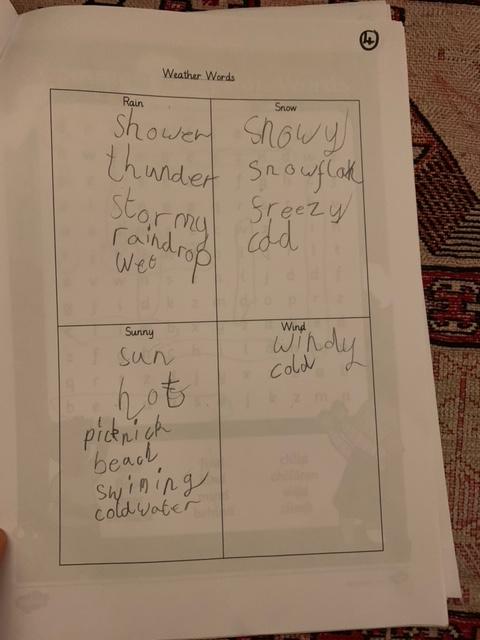 4
Weather Words
Rain
shower
thunder
stormy
raindrop
wet
Snow
snowy
snowflak
freezy
cold
Sunny
sun
hot
picknick
beach
swiming
coldwater
Wind
windy
cold